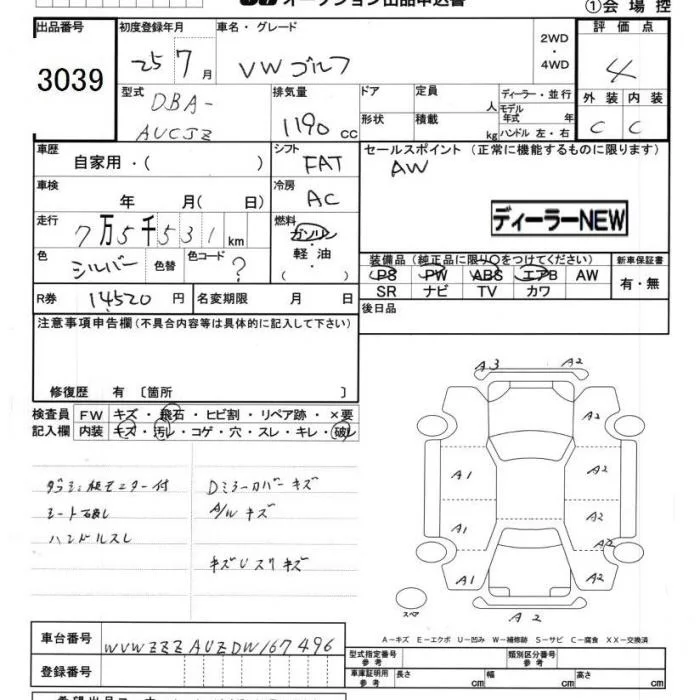 オークション出品申込書
①会場控
出品番号
3039
初度登録年月
25 7月
車名・グレード
VW ゴルフ
2WD
・
4WD
評価点
4
外装 内装
C C
型式
DBA-
AUCJZ
排気量
1190 cc
ドア
定員
人
形状
積載
kg
ディーラー・並行
モデル
年式 年
ハンドル 左・右
車歴
自家用・( )
シフト
FAT
セールスポイント (正常に機能するものに限ります)
AW
ディーラーNEW
車検
年 月( 日)
冷房
AC
走行
7万5千531km
燃料
ガソリン
・
軽油
( ・ )
色
シルバー
色替
色コード
?
装備品 (純正品に限り○をつけてください)
PS PW ABS エアB AW
SR ナビ TV カワ
新車保証書
有・無
R券 14520 円
名変期限 月 日
後日品
注意事項申告欄 (不具合内容等は具体的に記入して下さい)
修復歴 有 〔箇所 〕
検査員
記入欄
FW キズ・飛石・ヒビ割・リペア跡・×要
内装 キズ・汚レ・コゲ・穴・スレ・キレ・破レ
モニター付
シート破レ
ハンドルスレ
Dミラーカバーキズ
A/W キズ
キズUスリキズ
A3 A2
A2
A1 A2
A1 A2
A2
A1 A2
A2
スペア
A－キズ E－エクボ U－凹み W－補修跡 S－サビ C－腐食 XX－交換済
車台番号
WVWZZZAUZDW167496
登録番号
型式指定番号
参考
類別区分番号
参考
車庫証明用
参考
長さ cm 幅 cm 高さ cm